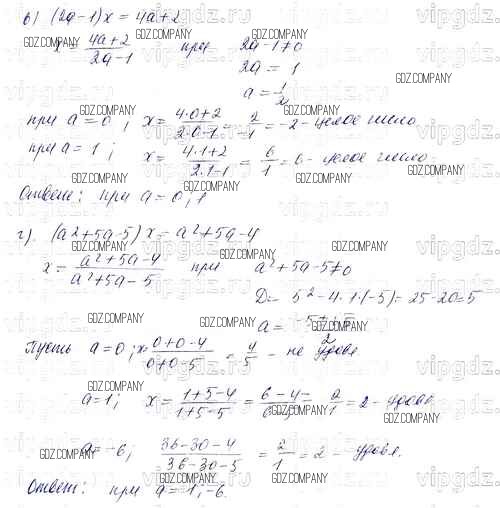 в) (2a-1)x = 4a+2
x = 4a+2 / 2a-1 при 2a-1≠0
2a = 1
a = 1/2
при a=0; x = 4·0+2 / 2·0-1 = 2/-1 = -2 - целое число
при a=1; x = 4·1+2 / 2·1-1 = 6/1 = 6 - целое число
Ответ: при a=0; 1
г). (a²+5a-5)x = a²+5a-4
x = a²+5a-4 / a²+5a-5 при a²+5a-5≠0
D = 5²-4·1·(-5) = 25-20=5
a =
2
Пусть a=0; x= 0+0-4 / 0+0-5 = 4/5 - не удовл
a=1; x = 1+5-4 / 1+5-5 = 6-4 = 2/1 = 2 - удовл.
a=-6; 36-30-4 / 36-30-5 = 2/1 = 2 - удовл.
Ответ: при a=1; -6.
GDZ.COMPANY
vipgdz.ru